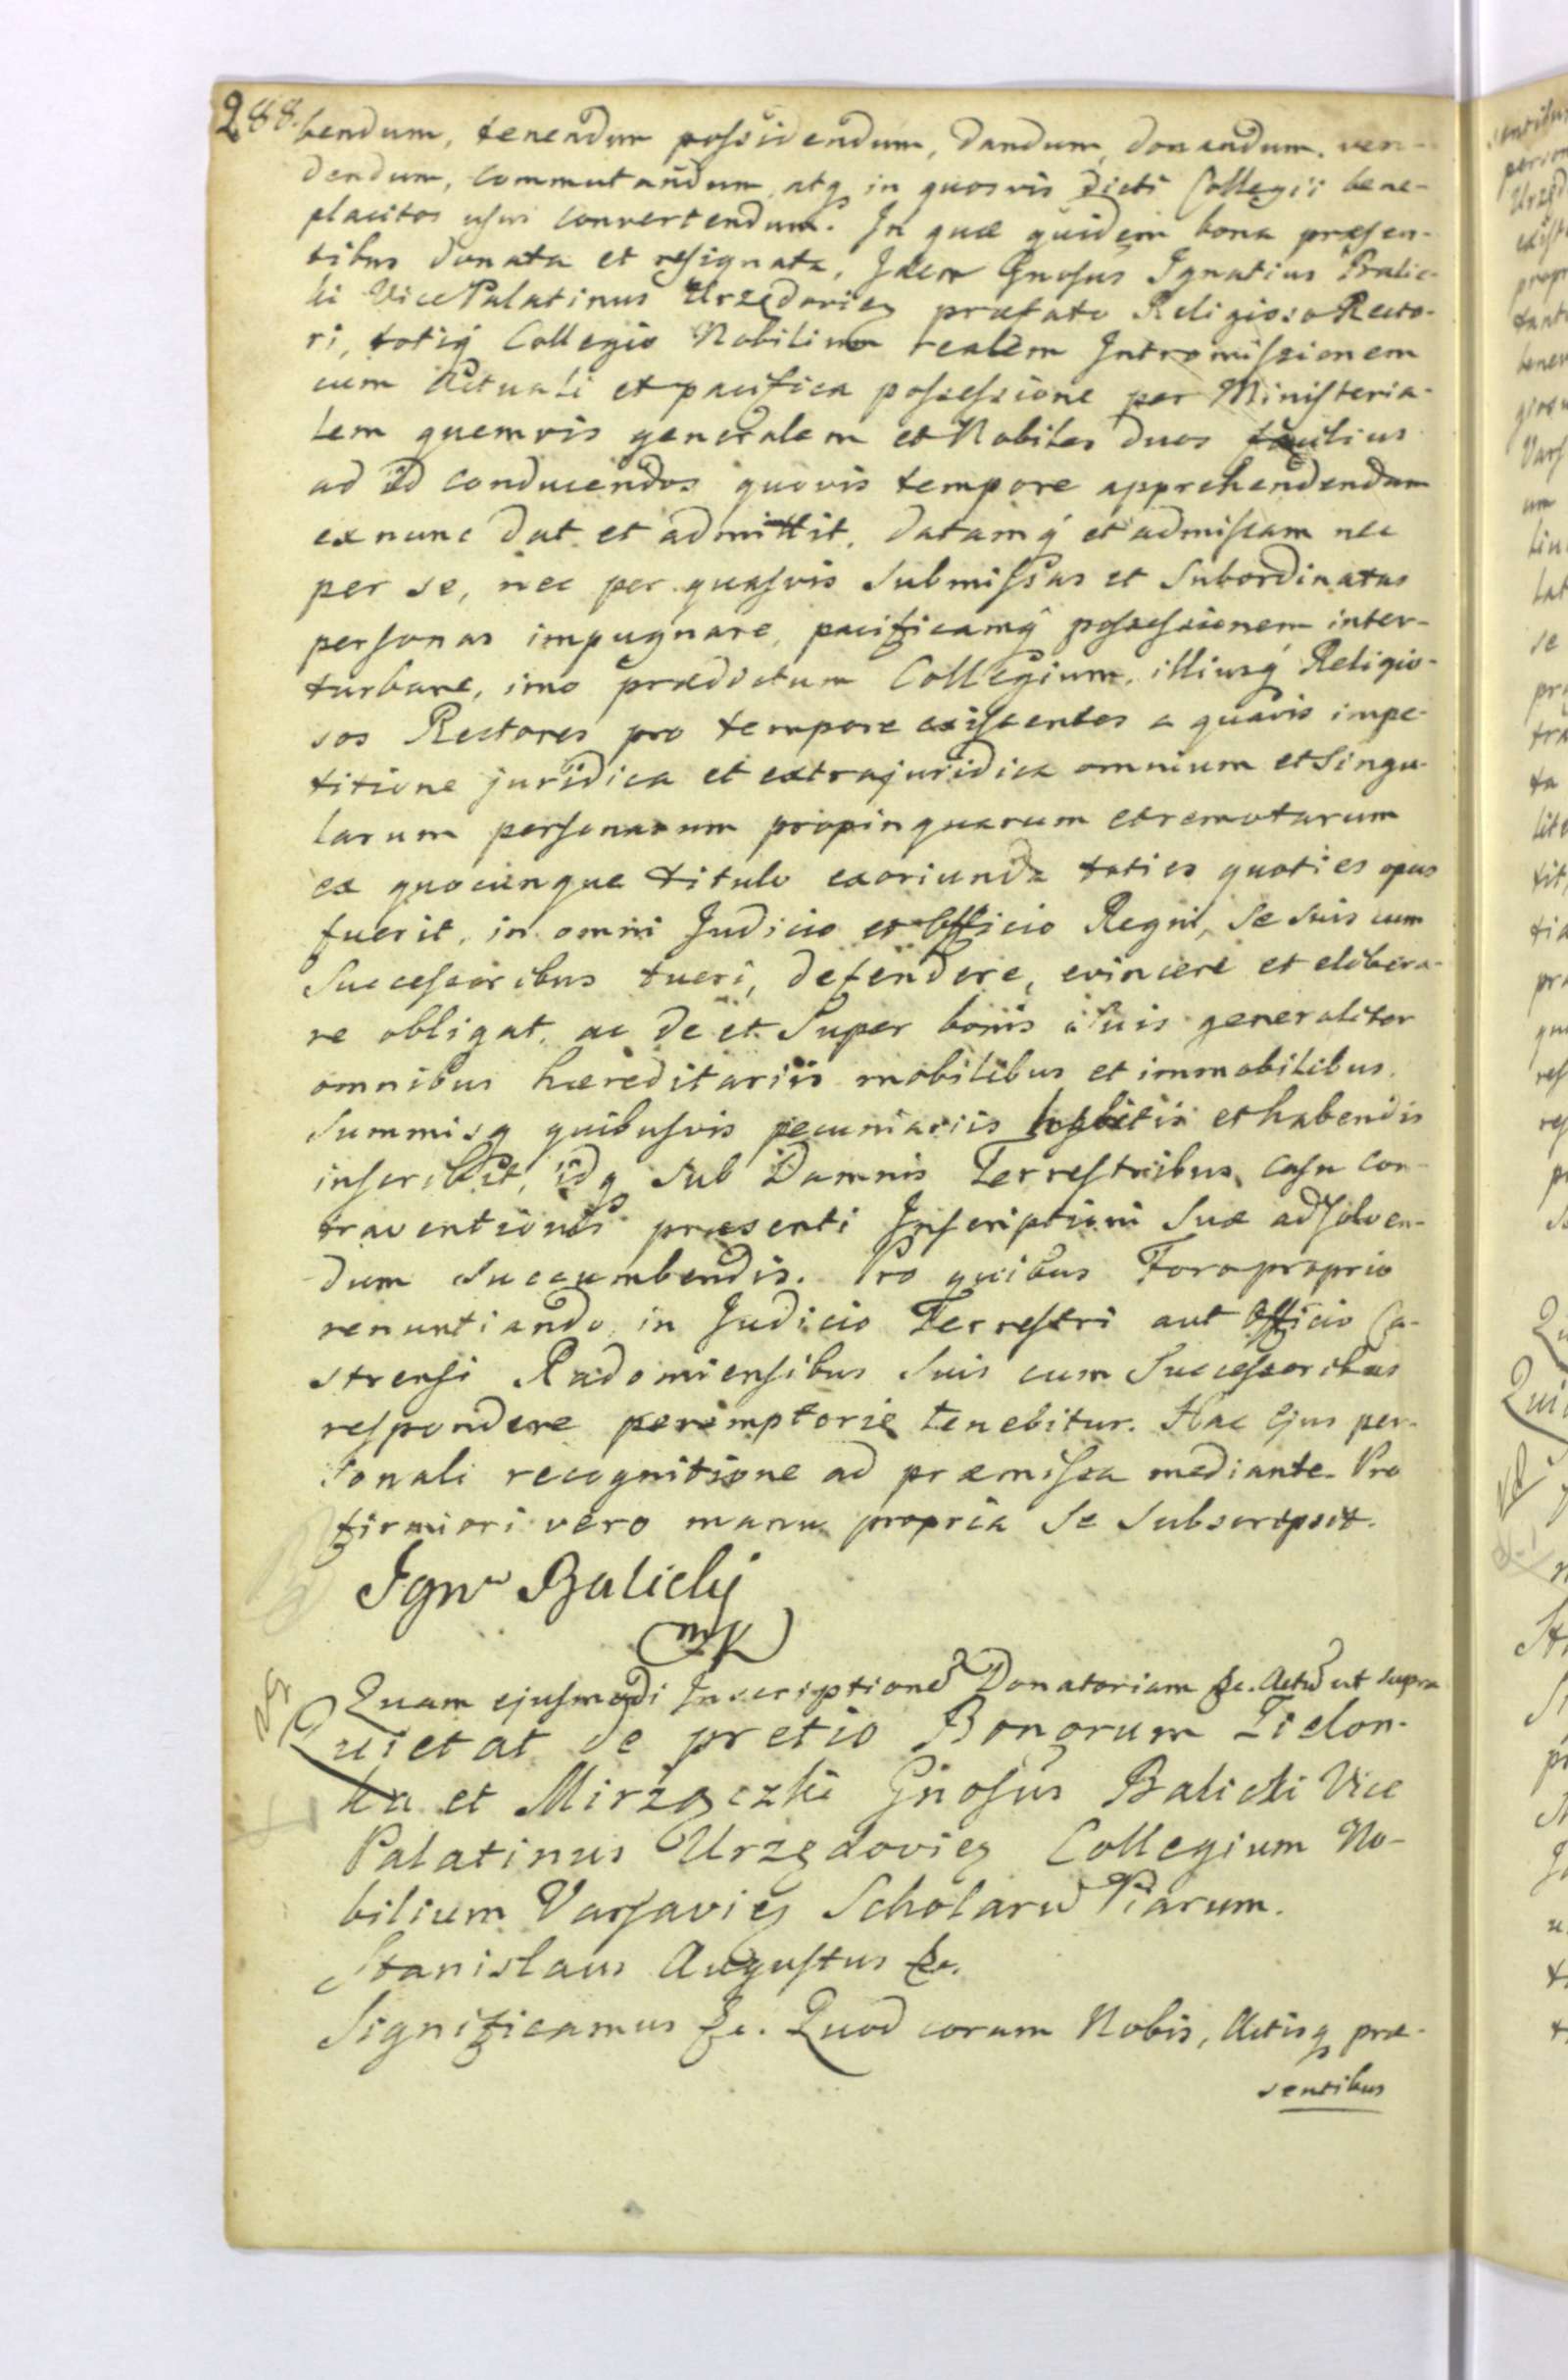 288.
bendum, tenendum possidendum, dandum, donandum, ven-
dendum, commutandum, atq in quosvis Dicti Collegii bene-
placitos usus convertendum. In quæ quidem bona præsen-
tibus donata et resignata, Idem Gnosus Ignatius Balic-
ki Vice Palatinus Urzędovien præfato Religioso Recto-
ri, totiq Collegio Nobilium realem Intromissionem
cum Actuali et pacifica possessione per Ministeria-
lem quemvis generalem et Nobiles duos facilius
ad id conducendos quovis tempore apprehendendam
ex nunc dat et admittit, datamq et admissam nec
per se, nec per quasvis Submissas et Subordinatas
personas impugnare, pacificamq possessionem inter-
turbare, imo prædictum Collegium, illiusq Religio-
sos Rectores pro tempore existentes a quavis impe-
titione juridica et extrajuridica omnium et Singu-
larum personarum propinquarum et remotarum
ex quocunque titulo exoriunda toties quoties opus
fuerit, in omni Judicio et Officio Regni, Se Suis cum
Successoribus tueri, defendere, evincere et elibera-
re obligat, ac de et Super bonis Suis generaliter
omnibus hæreditariis mobilibus et immobilibus,
Summisq quibusvis pecuniariis habitis et habendis
inscribit, idq Sub Damnis Terrestribus, casu con-
traventionis præsenti Inscriptioni Suæ ad Solven-
dum Succumbendis. Pro quibus Foro proprio
renuntiando, in Judicio Terrestri aut Officio Ca-
strensi Radomiensibus Suis cum Successoribus
respondere peremptorie tenebitur. Hac Ejus per-
sonali recognitione ad præmissa mediante. Pro
firmiori vero manu propria Se Subscripsit.
Igna Balicky
mp
Quam ejusmodi Inscriptione Donatoriam &c. Actu ut supra
Quietat de pretio Bonorum Zielon-
ka et Mirzączki Gnosus Balicki Vice
Palatinus Urzędovien Collegium No-
bilium Varsavien Scholaru Piarum.
Stanislaus Augustus &c.
Significamus &c. Quod coram Nobis, Actisq præ-
sentibus